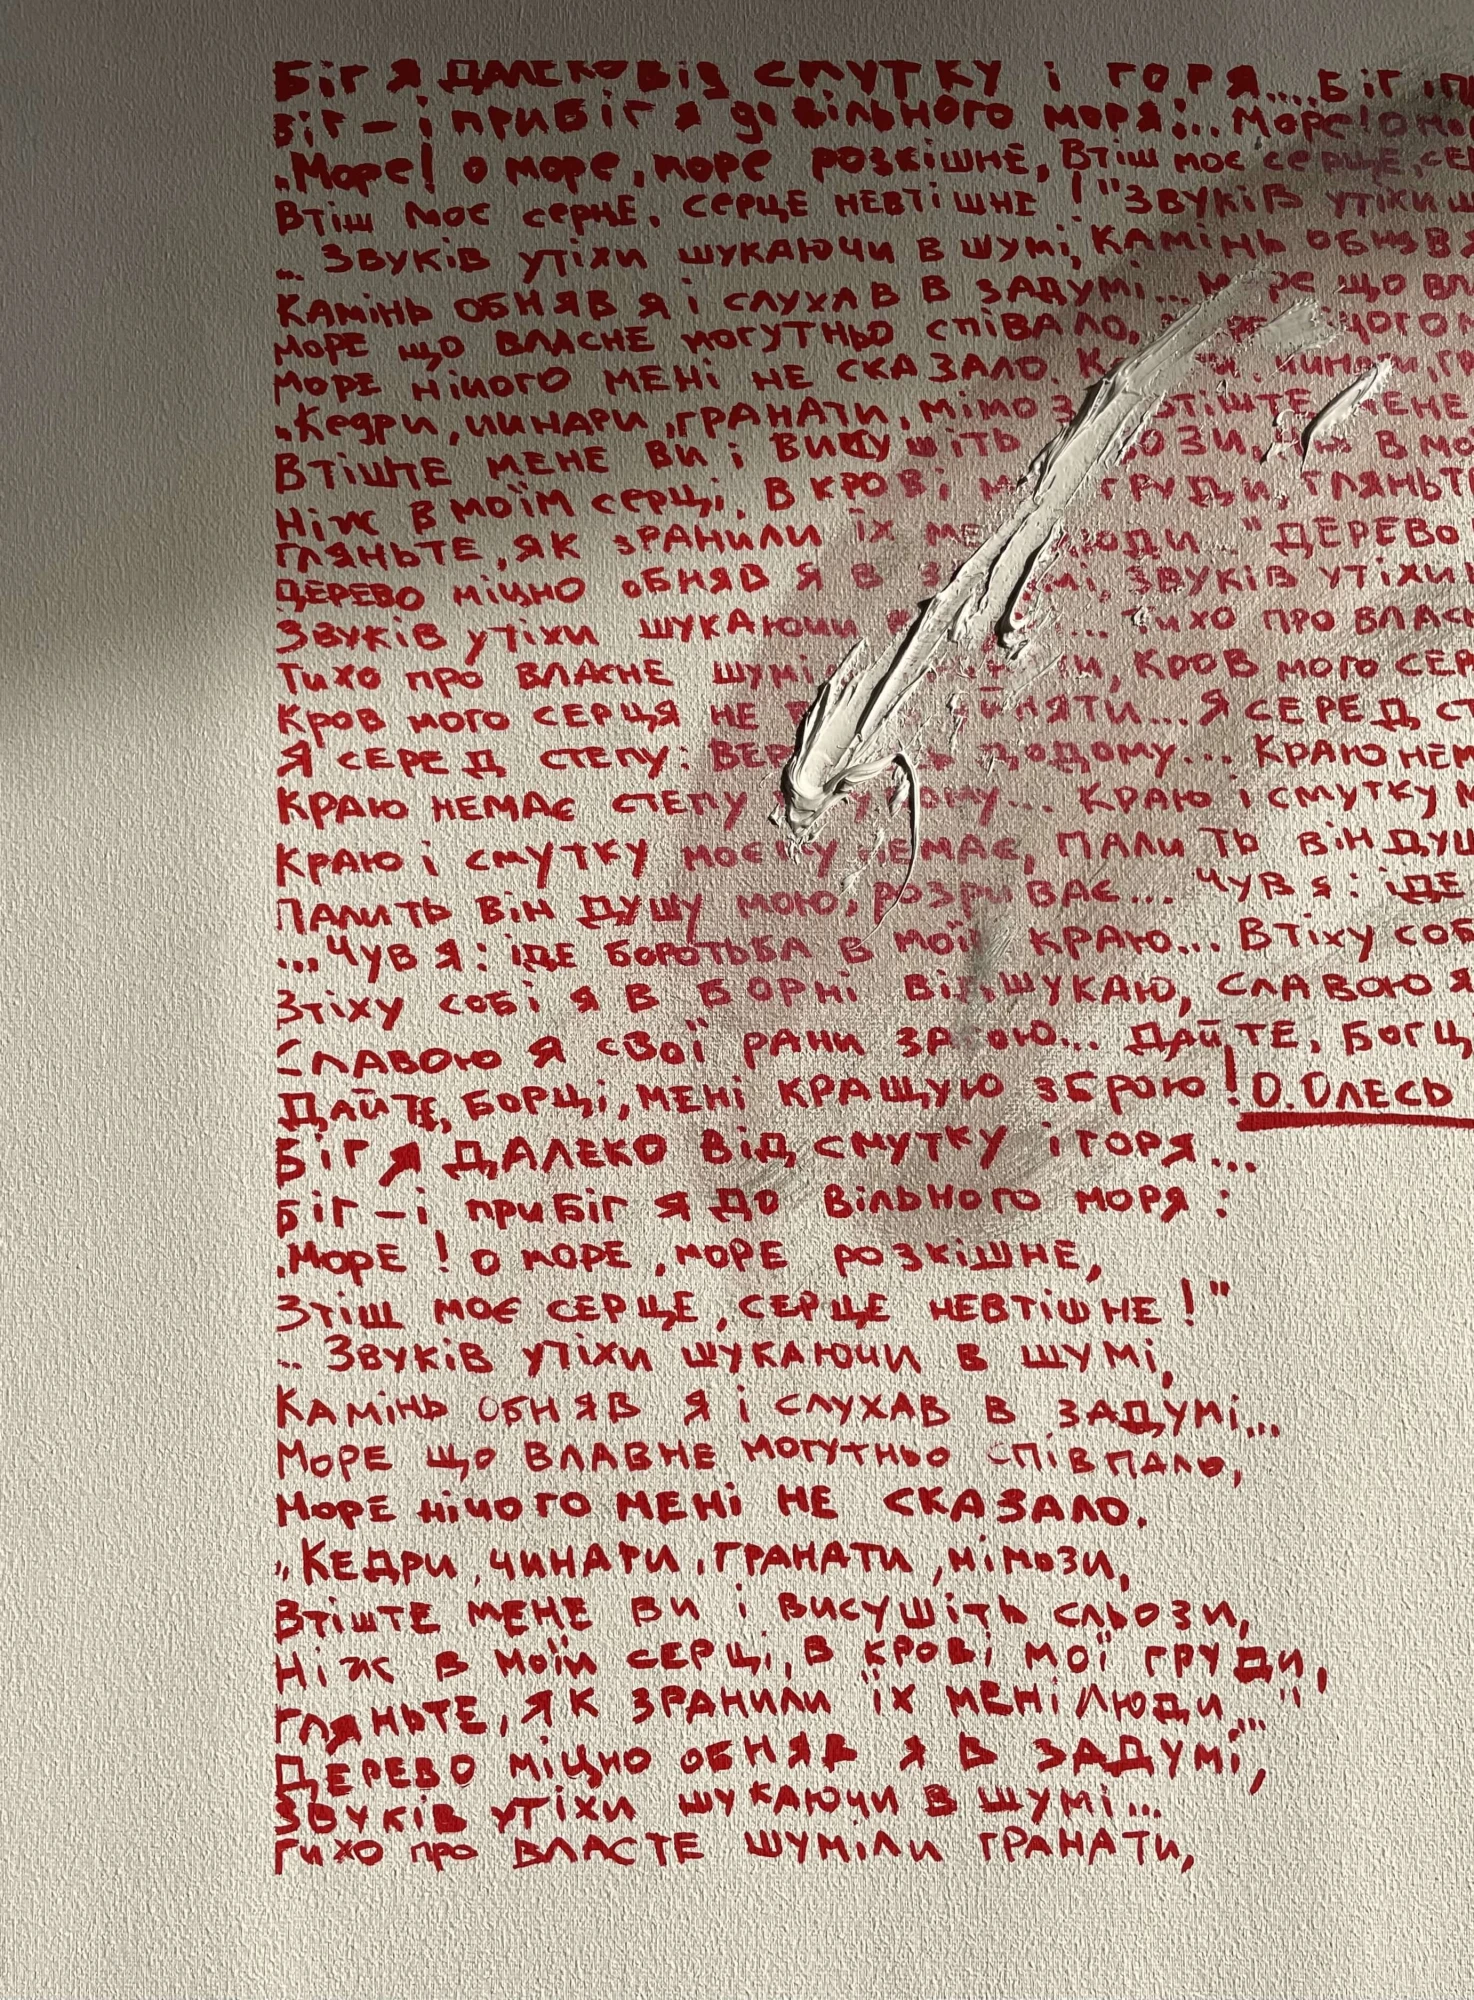 Біг я далеко від смутку і горя.... Біг
Біг – і прибіг я до вільного моря... Море! О
„Море! о море, море розкішне, Втіш моє серце,
Втіш моє серце, серце невтішне!" Звуків утіхи
.. Звуків утіхи шукаючи в шумі, Камінь обняв
Камінь обняв я і слухав в задумі... що
Море що власне могутньо співало,
Море нічого мені не сказало.
„Кедри, чинари, гранати,
Втіште мене ви і
Ніж в моїм серці, в крові груди, гляньте
Гляньте, як зранили їх люди.." Дерево
Дерево міцно обняв я в Звуків утіхи
Звуків утіхи шукаючи ... Тихо про
Тихо про власне Кров мого
Кров мого серця не ... Я серед
Я серед степу: додому... Краю
Краю немає степу ... Краю і смутку
Краю і смутку моєму немає, палить він
Палить він душу мою, розриває... Чув я: іде
...Чув я: іде боротьба в моїм краю... Втіху
Зтіху собі я в борні відшукаю, славою я
Славою я свої рани загою... Дайте,
Дайте, борці, мені кращую зброю! О.Олесь
Біг я далеко від смутку і горя...
Біг – і прибіг я до вільного моря:
„Море! о море, море розкішне,
Зтіш моє серце, серце невтішне!"
.. Звуків утіхи шукаючи в шумі,
Камінь обняв я і слухав в задумі...
Море що влавне могутньо співпало,
Море нічого мені не сказало.
„Кедри, чинари, гранати, мімози,
Втіште мене ви і висушіть сльози,
Ніж в моїм серці, в крові мої груди,
Гляньте, як зранили їх мені люди..."
Дерево міцно обняв я в задумі,
Звуків утіхи шукаючи в шумі...
Тихо про власте шуміли гранати,